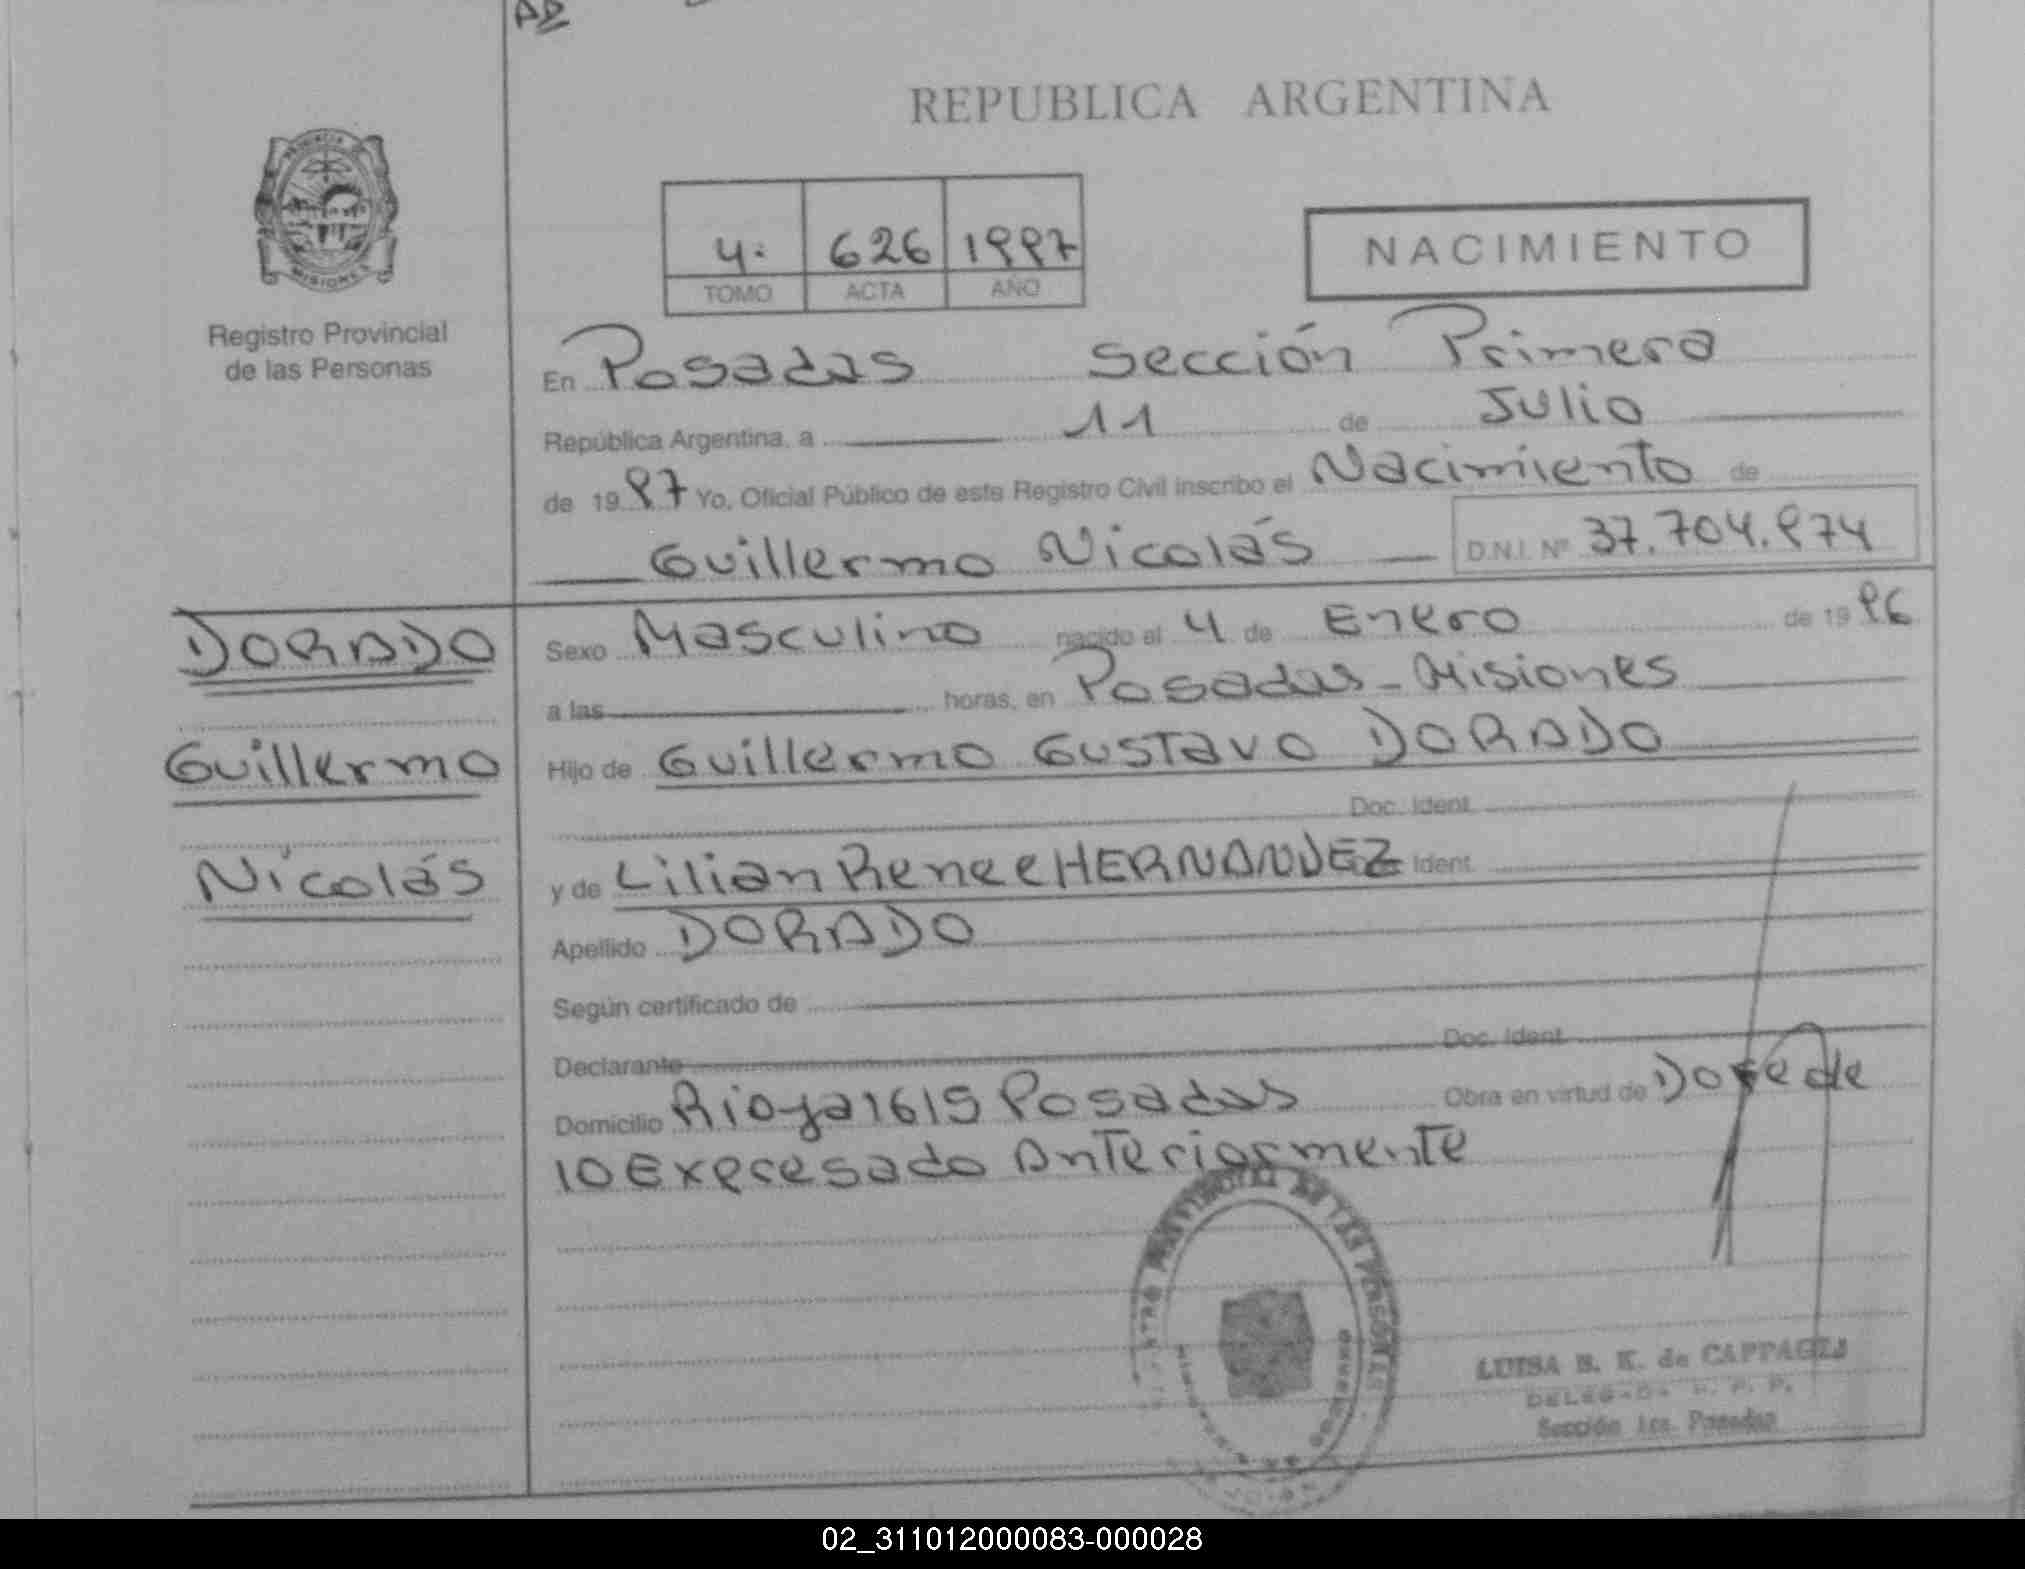 REPUBLICA ARGENTINA
PROVINCIA DE
MISIONES
Registro Provincial
de las Personas
4. 626 1997
TOMO ACTA AÑO
NACIMIENTO
En Posadas Sección Primera
República Argentina, a 11 de Julio
de 1997 Yo, Oficial Público de este Registro Civil inscribo el Nacimiento de
Guillermo Nicolás D.N.I. Nº 37.704.974
DORADO
Guillermo
Nicolás
Sexo Masculino nacido el 4 de Enero de 1996
a las horas, en Posadas - Misiones
Hijo de Guillermo Gustavo DORADO
Doc. Ident.
y de Lilian Renee HERNANDEZ Ident.
Apellido DORADO
Según certificado de
Declarante Doc. Ident.
Domicilio Rioja 1615 Posadas Obra en virtud de
10 Expresado Anteriormente
LUISA B. K. de
DELEGADA R. P. P.
Sección 1ra. Posadas
02_311012000083-000028